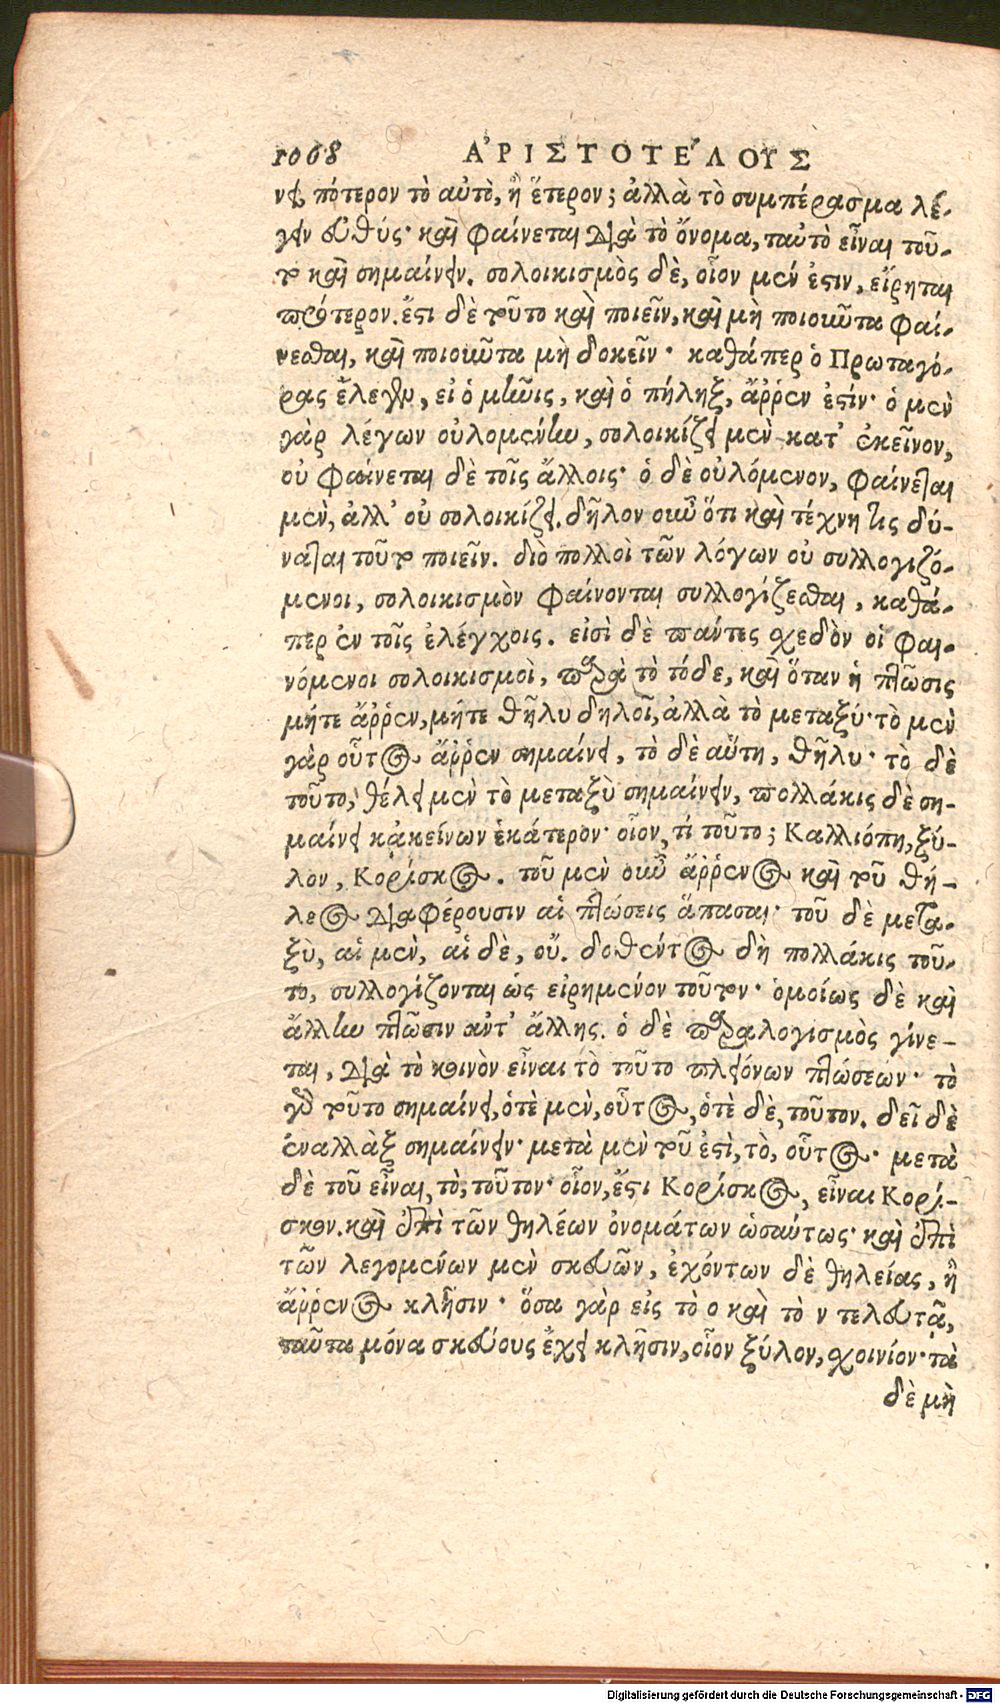 1068 ἈΡΙΣΤΟΤΕΛΟΥΣ
νει, πότερον τὸ αὐτὸ, ἢ ἕτερον; ἀλλὰ τὸ συμπέρασμα λέ-
γειν εὐθύς· καὶ φαίνεται διὰ τὸ ὄνομα, ταὐτὸ εἶναι τοῦ-
το καὶ σημαίνειν. σολοικισμὸς δὲ, οἷον μέν ἐστιν, εἴρηται
πρότερον. ἔστι δὲ τοῦτο καὶ ποιεῖν, καὶ μὴ ποιοῦντα φαί-
νεσθαι, καὶ ποιοῦντα μὴ δοκεῖν· καθάπερ ὁ Πρωταγό-
ρας ἔλεγεν, εἰ ὁ μῆνις, καὶ ὁ πήληξ, ἄῤῥεν ἐστίν· ὁ μὲν
γὰρ λέγων οὐλομένην, σολοικίζει μὲν κατ' ἐκεῖνον,
οὐ φαίνεται δὲ τοῖς ἄλλοις· ὁ δὲ οὐλόμενον, φαίνεται
μὲν, ἀλλ' οὐ σολοικίζει. δῆλον οὖν ὅτι καὶ τέχνῃ τις δύ-
ναται τοῦτο ποιεῖν. διὸ πολλοὶ τῶν λόγων οὐ συλλογιζό-
μενοι, σολοικισμὸν φαίνονται συλλογίζεσθαι, καθά-
περ ἐν τοῖς ἐλέγχοις. εἰσὶ δὲ πάντες σχεδὸν οἱ φαι-
νόμενοι σολοικισμοὶ, παρὰ τὸ τόδε, καὶ ὅταν ἡ πτῶσις
μήτε ἄῤῥεν, μήτε θῆλυ δηλοῖ, ἀλλὰ τὸ μεταξύ· τὸ μὲν
γὰρ οὗτος ἄῤῥεν σημαίνει, τὸ δὲ αὕτη, θῆλυ· τὸ δὲ
τοῦτο, θέλει μὲν τὸ μεταξὺ σημαίνειν, πολλάκις δὲ ση-
μαίνει κἀκείνων ἑκάτερον· οἷον, τί τοῦτο; Καλλιόπη, ξύ-
λον, Κορίσκος. τοῦ μὲν οὖν ἄῤῥενος καὶ τοῦ θή-
λεος διαφέρουσιν αἱ πτώσεις ἅπασαι· τοῦ δὲ μετα-
ξὺ, αἱ μὲν, αἱ δὲ, οὔ. δοθέντος δὴ πολλάκις τοῦ-
το, συλλογίζονται ὡς εἰρημένον τοῦτον· ὁμοίως δὲ καὶ
ἄλλην πτῶσιν ἀντ' ἄλλης. ὁ δὲ παραλογισμὸς γίνε-
ται, διὰ τὸ κοινὸν εἶναι τὸ τοῦτο πλειόνων πτώσεων· τὸ
γὰρ τοῦτο σημαίνει, ὁτὲ μὲν, οὗτος, ὁτὲ δὲ, τοῦτον. δεῖ δὲ
ἐναλλὰξ σημαίνειν· μετὰ μὲν τοῦ ἐστὶ, τὸ, οὗτος· μετὰ
δὲ τοῦ εἶναι, τὸ, τοῦτον· οἷον, ἔστι Κορίσκος, εἶναι Κορί-
σκον. καὶ ἐπὶ τῶν θηλέων ὀνομάτων ὡσαύτως· καὶ ἐπὶ
τῶν λεγομένων μὲν σκευῶν, ἐχόντων δὲ θηλείας, ἢ
ἄῤῥενος κλῆσιν· ὅσα γὰρ εἰς τὸ ο καὶ τὸ ν τελευτᾷ,
ταῦτα μόνα σκεύους ἔχει κλῆσιν, οἷον ξύλον, σχοινίον· τὰ
δὲ μὴ
Digitalisierung gefördert durch die Deutsche Forschungsgemeinschaft - DFG